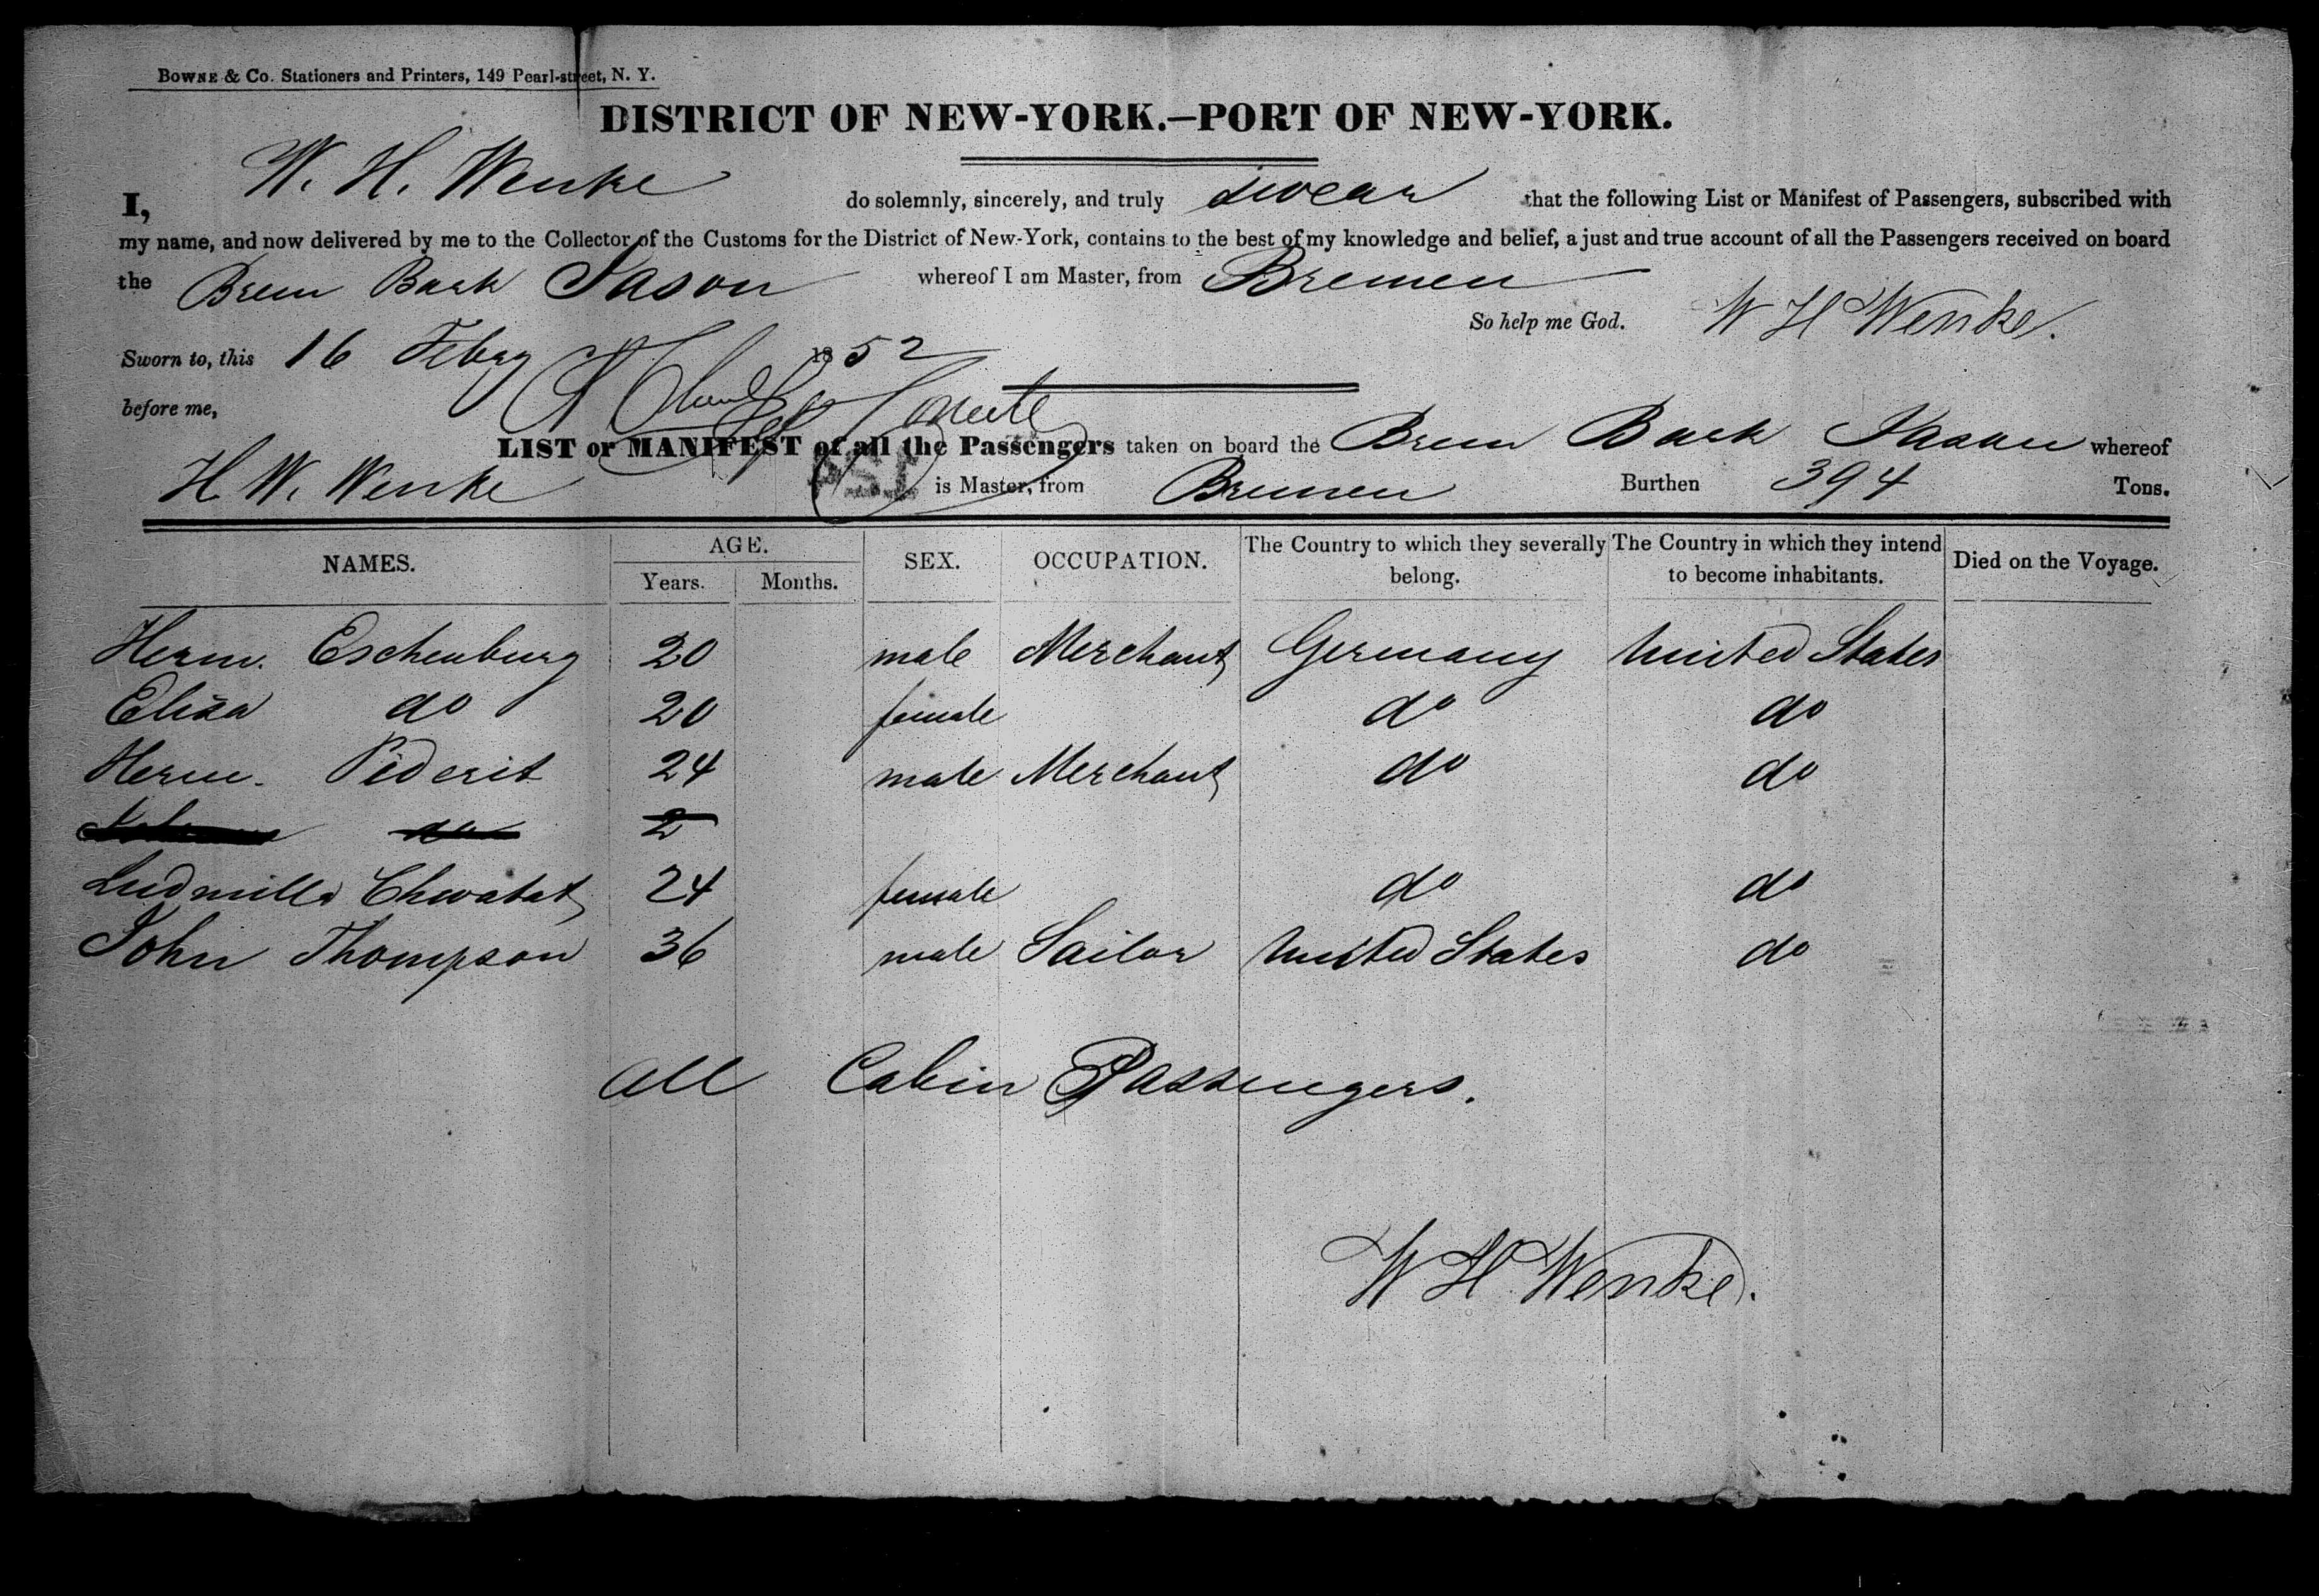 BOWNE & Co. Stationers and Printers, 149 Pearl-street, N. Y.
DISTRICT OF NEW-YORK.—PORT OF NEW-YORK.
I, W. H. Wenke do solemnly, sincerely, and truly swear that the following List or Manifest of Passengers, subscribed with
my name, and now delivered by me to the Collector of the Customs for the District of New-York, contains to the best of my knowledge and belief, a just and true account of all the Passengers received on board
the Brem Bark Jason whereof I am Master, from Bremen
So help me God. W H Wenke.
Sworn to, this 16 Febry 1852
before me,
LIST or MANIFEST of all the Passengers taken on board the Brem Bark Jason whereof
H. W. Wenke is Master, from Bremen Burthen 394 Tons.
NAMES. AGE. Years. Months. SEX. OCCUPATION. The Country to which they severally belong. The Country in which they intend to become inhabitants. Died on the Voyage.
Herm. Eschenburg 20 male Merchant Germany United States
Eliza do 20 female do do
Herm. Piderit 24 male Merchant do do
do 2
Ludmilla Chwatat 24 female do do
John Thompson 36 male Sailor United States do
All Cabin Passengers.
W H Wenke.